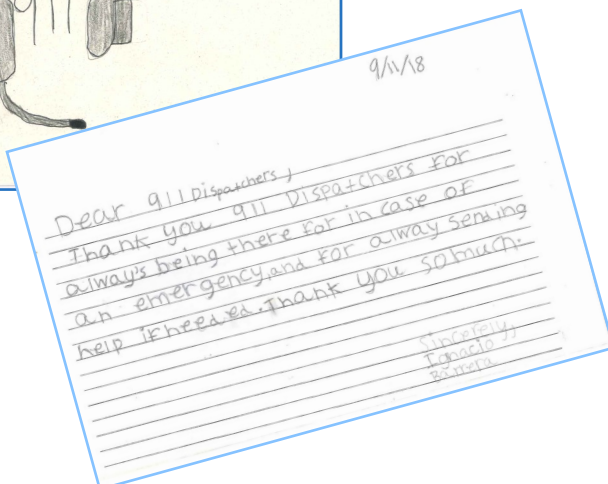 9/11/18
Dear 911 Dispatchers,
Thank you 911 Dispatchers for
alway's being there for in case of
an emergency,and for alway sending
help if needed. Thank you so much.
Sincerely,
Ignacio
Barrera